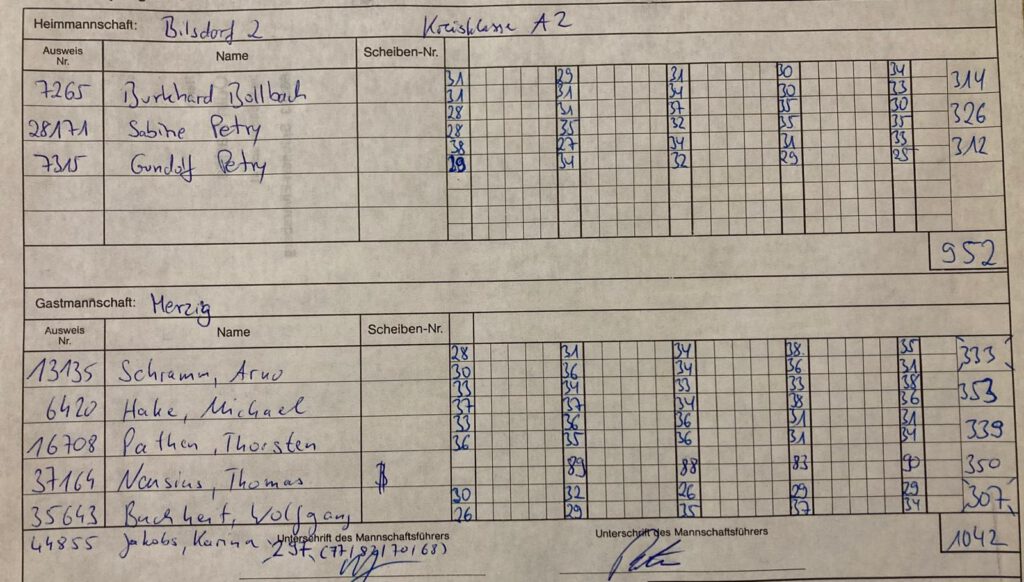 Heimmannschaft: Bilsdorf 2 Kreisklasse A2
Ausweis Nr. Name Scheiben-Nr.
31 29 31 30 34
7265 Burkhard Bollbach 31 31 34 30 33 314
28 31 37 35 30
28171 Sabine Petry 28 35 32 35 35 326
38 27 34 31 33
7315 Gundolf Petry 29 34 32 29 25 312
952
Gastmannschaft: Merzig
Ausweis Nr. Name Scheiben-Nr.
28 31 34 38 35
13135 Schramm, Arno 30 36 34 36 31 333
33 34 33 33 38
6420 Hake, Michael 37 37 34 38 36 353
33 36 36 31 31
16708 Pathen, Thorsten 36 35 36 31 34 339
37164 Thomas 89 88 83 90 350
30 32 26 29 29
35643 Wolfgang 26 29 35 37 34 307
44855 Jakobs, Karina 297 (77/82/70/68)
Unterschrift des Mannschaftsführers Unterschrift des Mannschaftsführers
1042